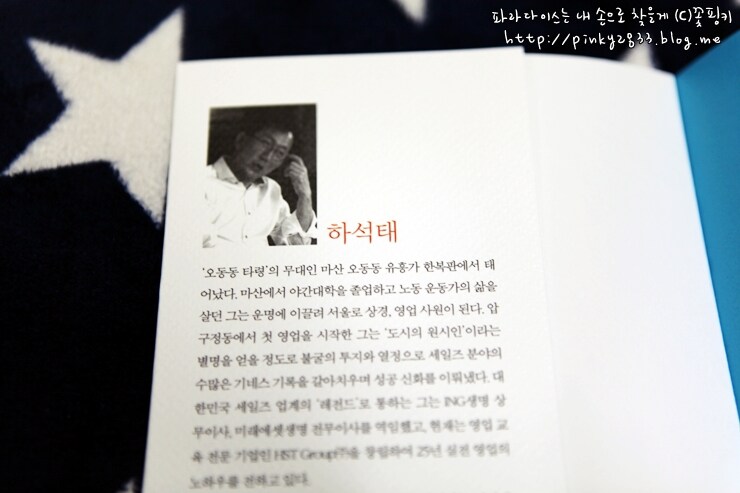 파라다이스는 내 손으로 찾을게 (C)꽃핑키
http://pinky2833.blog.me
하석태
'오동동 타령'의 무대인 마산 오동동 유흥가 한복판에서 태
어났다. 마산에서 야간대학을 졸업하고 노동 운동가의 삶을
살던 그는 운명에 이끌려 서울로 상경, 영업 사원이 된다. 압
구정동에서 첫 영업을 시작한 그는 '도시의 원시인'이라는
별명을 얻을 정도로 불굴의 투지와 열정으로 세일즈 분야의
수많은 기네스 기록을 갈아치우며 성공 신화를 이뤄냈다. 대
한민국 세일즈 업계의 '레전드'로 통하는 그는 ING생명 상
무이사, 미래에셋생명 전무이사를 역임했고, 현재는 영업 교
육 전문 기업인 HST Group㈜을 창립하여 25년 실전 영업의
노하우를 전하고 있다.